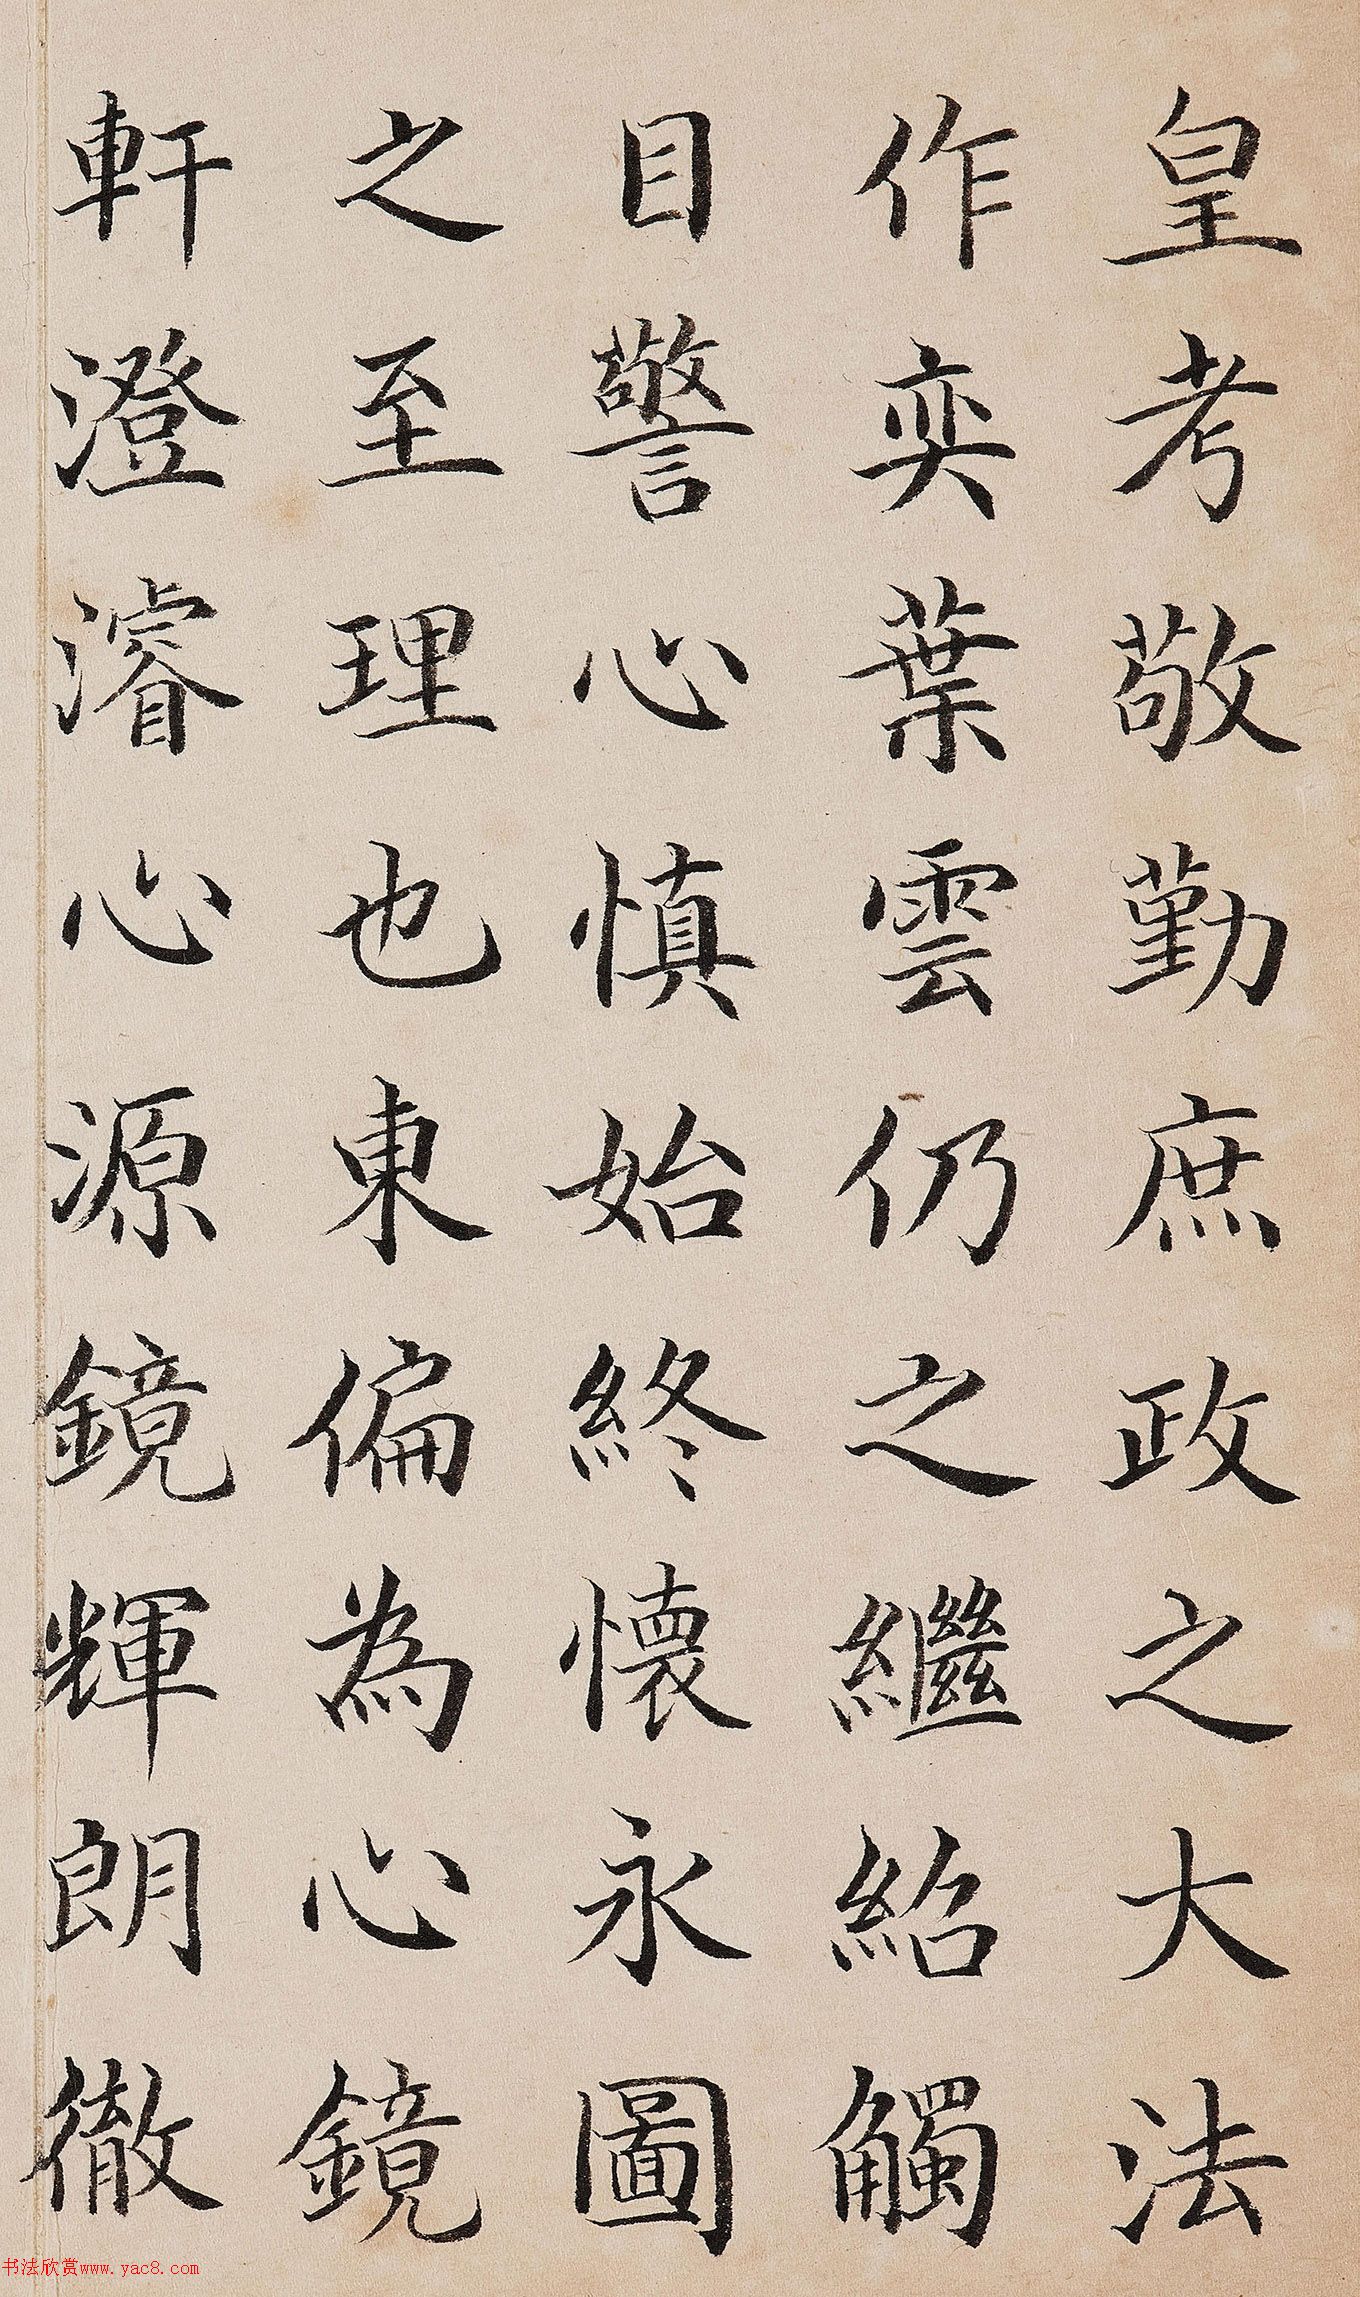 皇考敬勤庶政之大法
作奕葉雲仍之繼紹觸
目警心慎始終懷永圖
之至理也東偏為心鏡
軒澄濬心源鏡輝朗徹
书法欣赏www.yac8.com